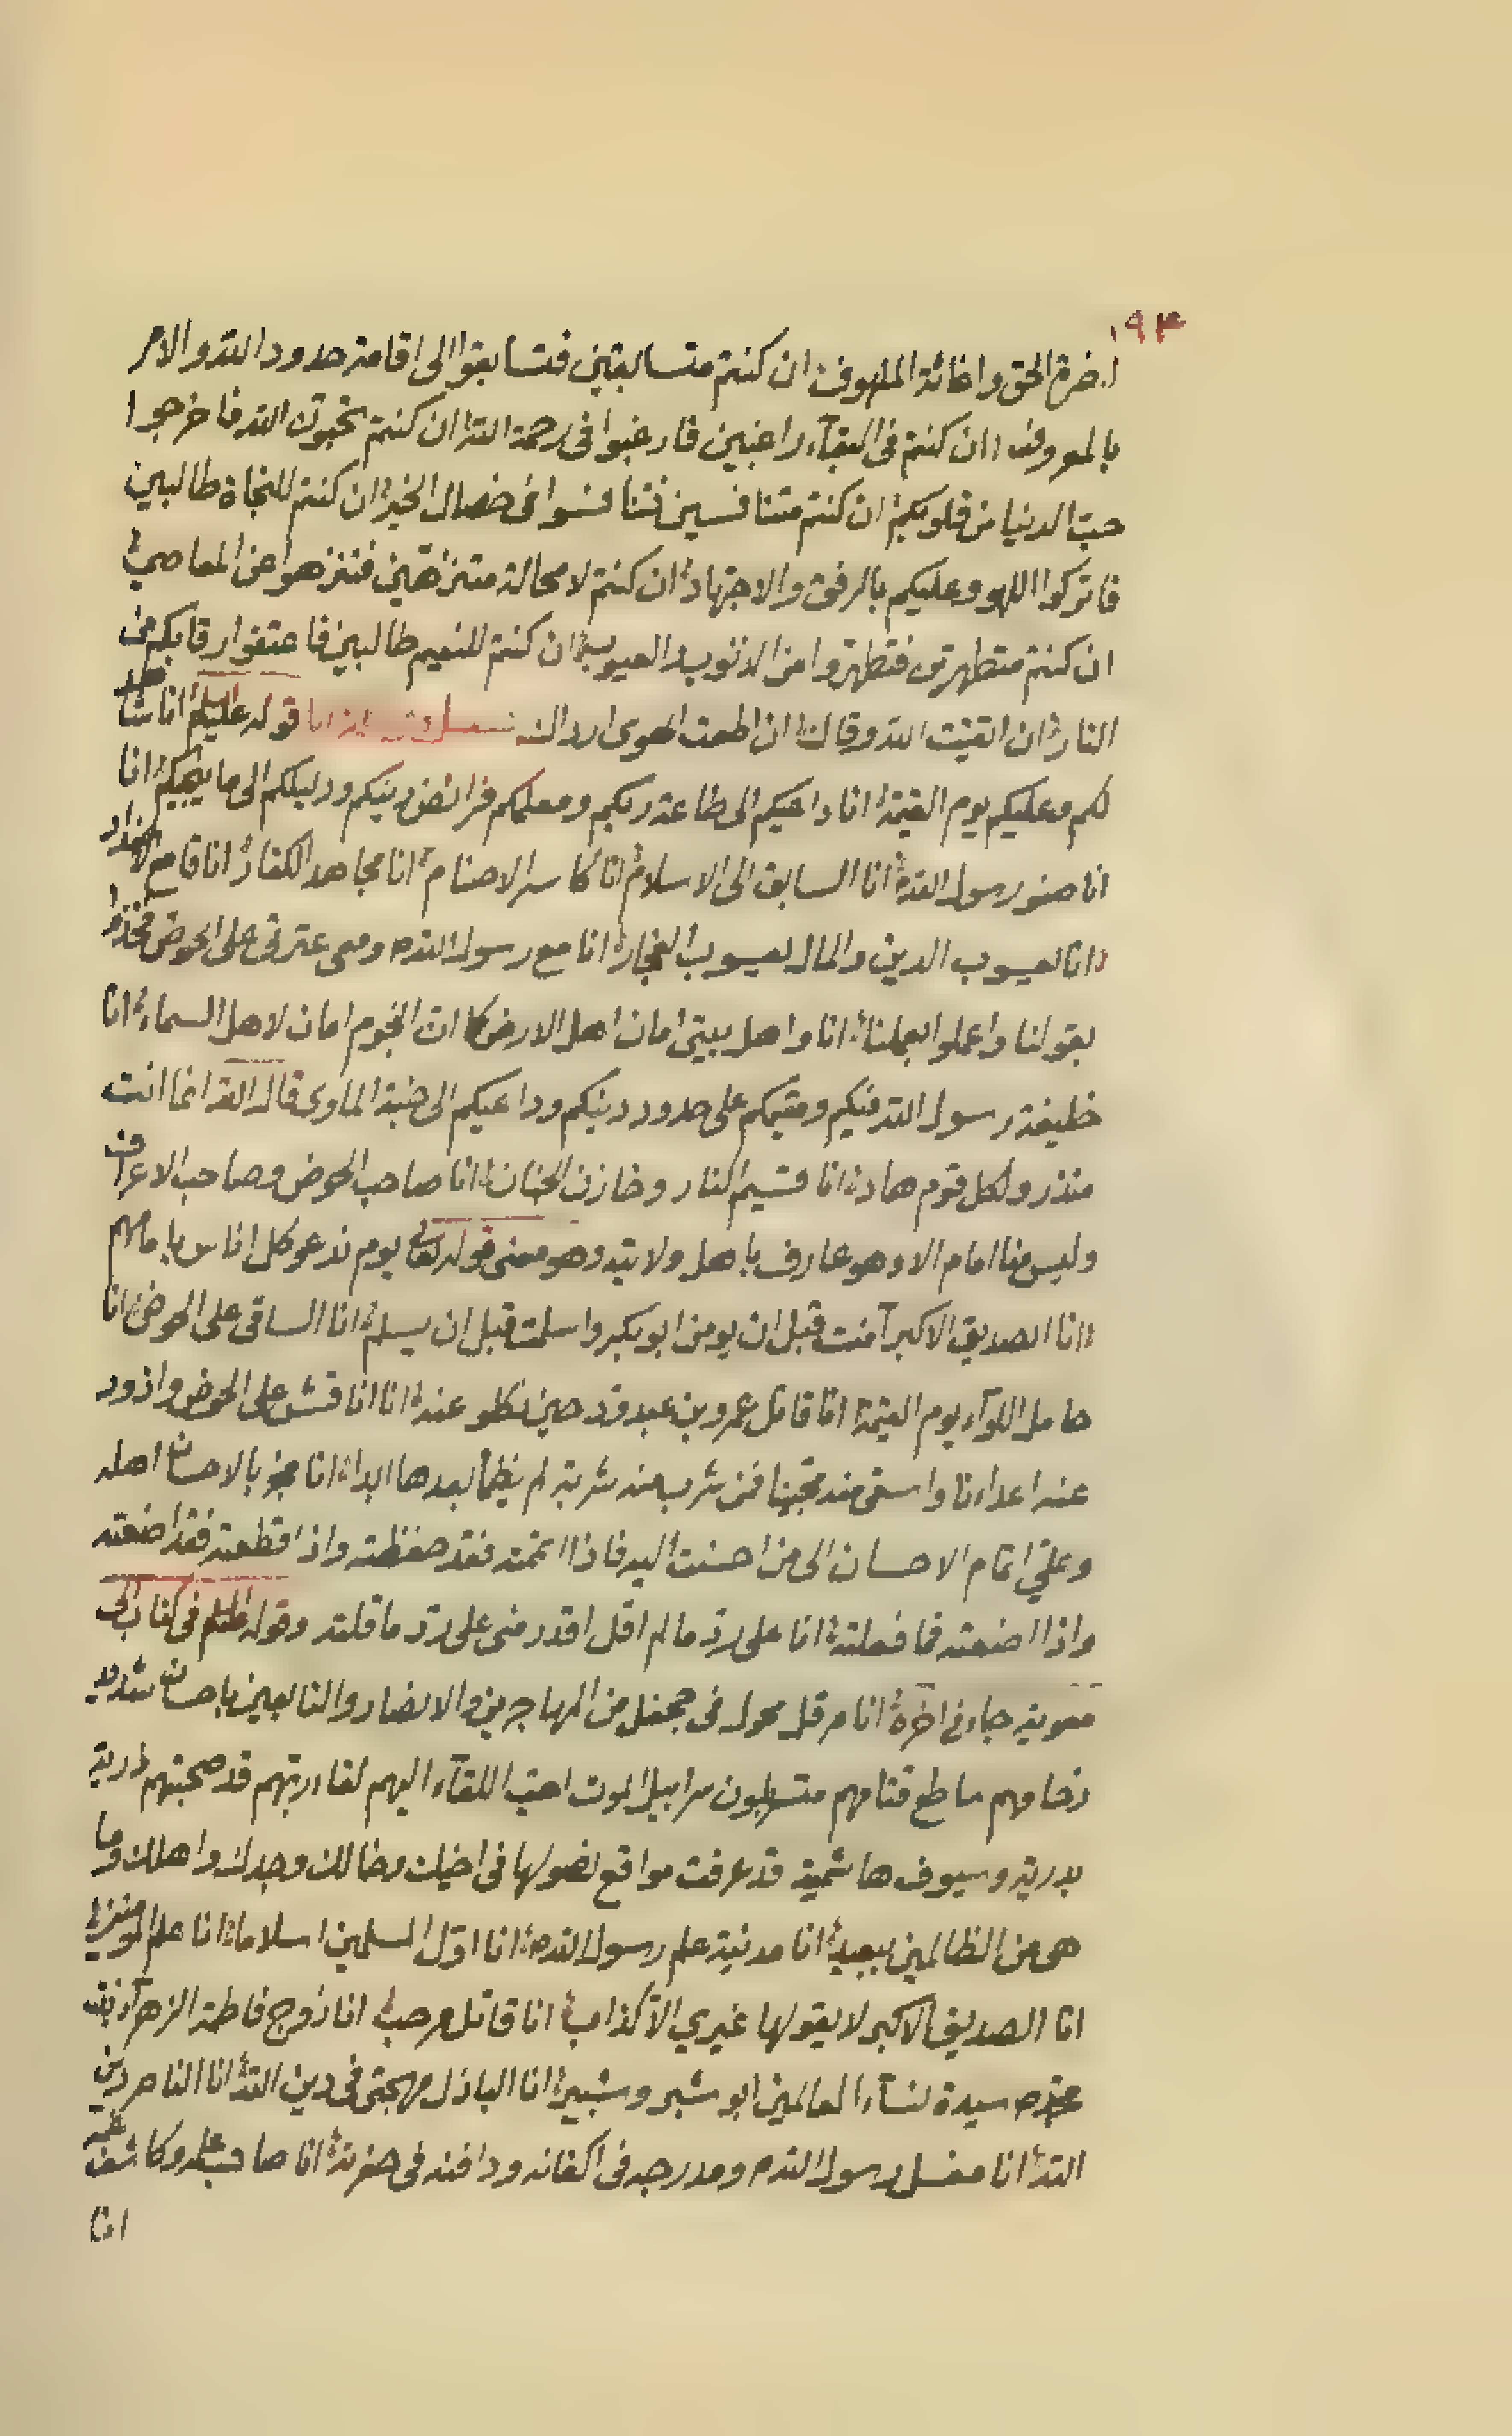 ۱۹۴
نصرة الحق واغاثة الملهوف ان كنتم متسابقين فتسابقوا الى اقامة حدود الله والامر
بالمعروف ان كنتم فى البقآء راغبين فارغبوا فى رحمة الله ان كنتم تحبون الله فاخرجوا
حبّ الدنيا من قلوبكم ان كنتم متنافسين فتنافسوا فى خصال الخير ان كنتم للنجاة طالبين
فاتركوا اللهو وعليكم بالرفق والاجتهاد ان كنتم لا محالة متنزهين فتنزهوا عن المعاصي
ان كنتم متطهرين فتطهروا من الذنوب والعيوب ان كنتم للنعيم طالبين فاعتقوا رقابكم من
النار ان اتقيت الله وقاك ان اطعت الهوى ارداك قوله عليلم انا شاهد
لكم وعليكم يوم القيمة انا داعيكم الى طاعة ربكم ومعلمكم فرائض دينكم ودليلكم الى ما ينجيكم انا
انا صنو رسول الله انا السابق الى الاسلام انا كاسر الاصنام انا مجاهد الكفار انا قامع الاضداد
انا يعسوب الدين والمال يعسوب الفجار انا مع رسول الله ص ومعى عترتى على الحوض فخذوا
بقولنا واعملوا بعملنا انا واهل بيتى امان اهل الارض كما ان النجوم امان لاهل السماء انا
خليفة رسول الله فيكم ومقيمكم على حدود دينكم وداعيكم الى جنة الماوى قال الله انما انت
منذر ولكل قوم هاد انا قسيم النار وخازن الجنان انا صاحب الحوض وصاحب الاعراف
وليس منا امام الا وهو عارف باهل ولايته وهو معنى قوله تعالى يوم ندعو كل اناس بامامهم
انا الصديق الاكبر آمنت قبل ان يومن ابو بكر واسلمت قبل ان يسلم انا الساقى على الحوض انا
حامل اللوآء يوم القيمة انا قاتل عمرو بن عبد ود حين نكلو عنه انا على الحوض واذود
عنه اعداءنا واسقى منه محبينا فمن شرب منه شربة لم يظمأ بعدها ابدا انا بالاحسان اهله
وعليّ اتمام الاحسان الى من احسنت اليه فاذا اتممته فقد حفظته واذا قطعته فقد اضعته
واذا اضعته فما فعلته انا على ردّ ما لم اقل اقدر منى على ردّ ما قلته وقوله عليلم فى كتاب الى
معوية جاء فى اخره انا مرقل نحوك فى جحفل من المهاجرين والانصار والتابعين باحسان شديد
زحامهم ساطع قتامهم متسربلون سرابيل الموت احبّ اللقآء اليهم لقاء ربّهم قد صحبتهم ذرية
بدرية وسيوف هاشمية قد عرفت مواقع نصولها فى اخيك وخالك وجدك واهلك وما
هى من الظالمين ببعيد انا مدينة علم رسول الله ص انا اوّل المسلمين اسلاما انا
انا الصديق الاكبر لا يقولها غيري الاّ كذاب انا قاتل مرحب انا زوج فاطمة الزهرآء بنت
محمد ص سيدة نسآء العالمين ابو شبر وشبير انا الباذل مهجتى فى دين الله انا الناصر دين
الله انا مغسل رسول الله ص ومدرجه فى اكفانه ودافنه فى حفرته انا صاحب علمه وكاشف غمه
انا